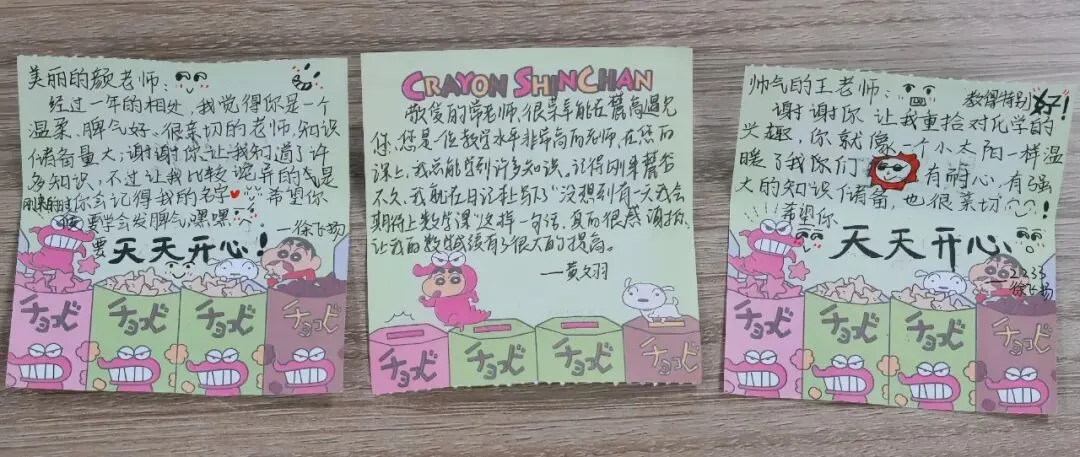 美丽的颜老师:
经过一年的相处,我觉得你是一个
温柔、脾气好、很亲切的老师,知识
储备量大;谢谢你,让我知道了许
多知识,不过让我比较诧异的就是
刚来的时你会记得我的名字 希望你
要学会发脾气,嘿嘿
要天天开心!
—徐飞扬
チョコビ チョコビ チョコビ チョコビ
CRAYON SHINCHAN
敬爱的常老师,很荣幸能在麓高遇见
您,您是一位教学水平非常高的老师,在您的
课上,我总能学到许多知识。记得刚来麓高
不久,我就在日记本上写了“没想到有一天我会
期待上数学课”这样一句话,真的很感谢您,
让我的数学成绩有了很大的提高。
—黄文羽
チョコビ チョコビ チョコビ チョコビ
帅气的王老师:
教得特别好!
谢谢你 让我重拾对化学的
兴趣,你就像一个小太阳一样温
暖了我们 有耐心,有强
大的知识储备,也很亲切
希望你
天天开心
—2233
徐飞扬
チョコビ チョコビ チョコビ チョコビ